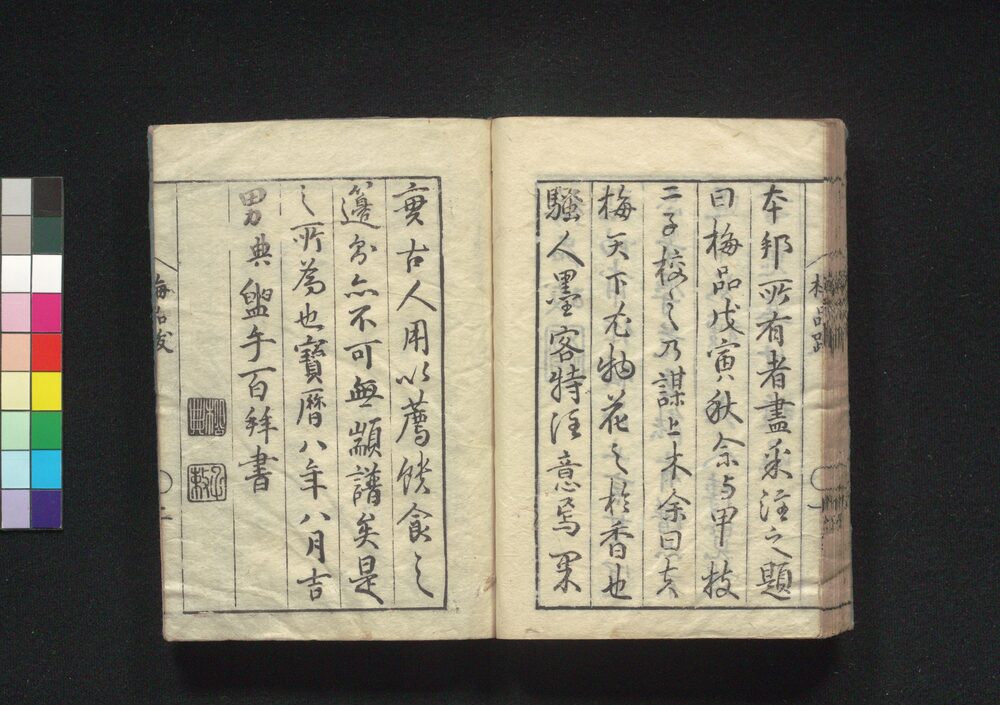 本邦所有者盡采注之題
曰梅品戊寅秋余与甲枝
二子校之乃謀上木余曰夫
梅天下尤物花之於香也
騒人墨客特注意焉果
實古人用以薦饋食之
籩宗亦不可無顓譜矣是
之所為也寶曆八年八月吉
男典盥手百拜書
梅品跋
梅品跋